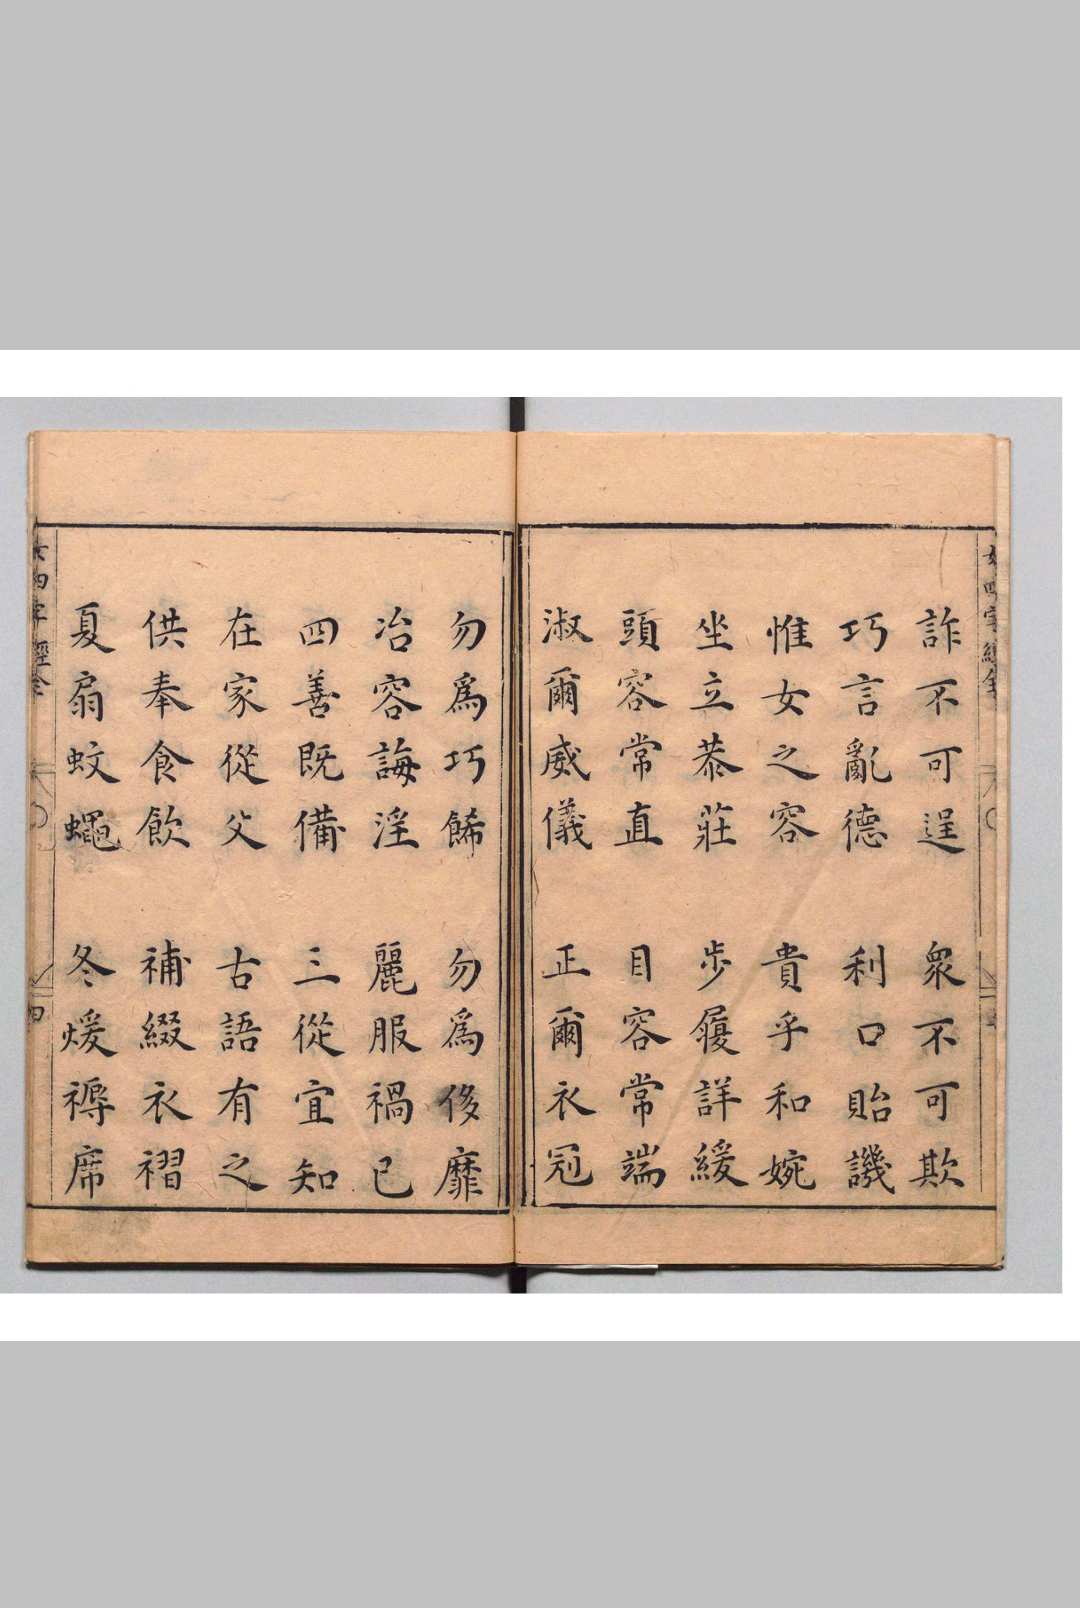 詐不可逞 衆不可欺
巧言亂德 利口貽譏
惟女之容 貴乎和婉
坐立恭莊 步履詳緩
頭容常直 目容常端
淑爾威儀 正爾衣冠
勿爲巧餙 勿爲侈靡
冶容誨淫 麗服禍已
四善既備 三從宜知
在家從父 古語有之
供奉食飲 補綴衣褶
夏扇蚊蠅 冬煖褥席
女四字經全
四